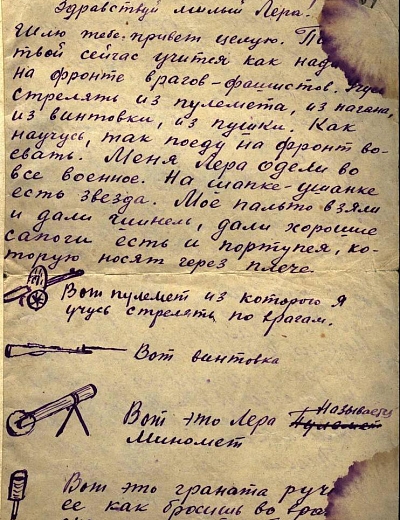 Здравствуй милый Лера!
шлю тебе привет целую.
твой сейчас учится как
на фронте врагов-фашистов. Учусь
стрелять из пулемета, из нагана,
из винтовки, из пушки. Как
научусь, так поеду на фронт во-
евать. Меня Лера одели во
все военное. На шапке-ушанке
есть звезда. Мое пальто взяли
и дали шинель, дали хорошие
сапоги есть и портупея, ко-
торую носят через плечо.
Вот пулемет из которого я
учусь стрелять по врагам.
Вот винтовка
Называется
Вот это Лера
Миномет
Вот это граната
ее как бросишь во